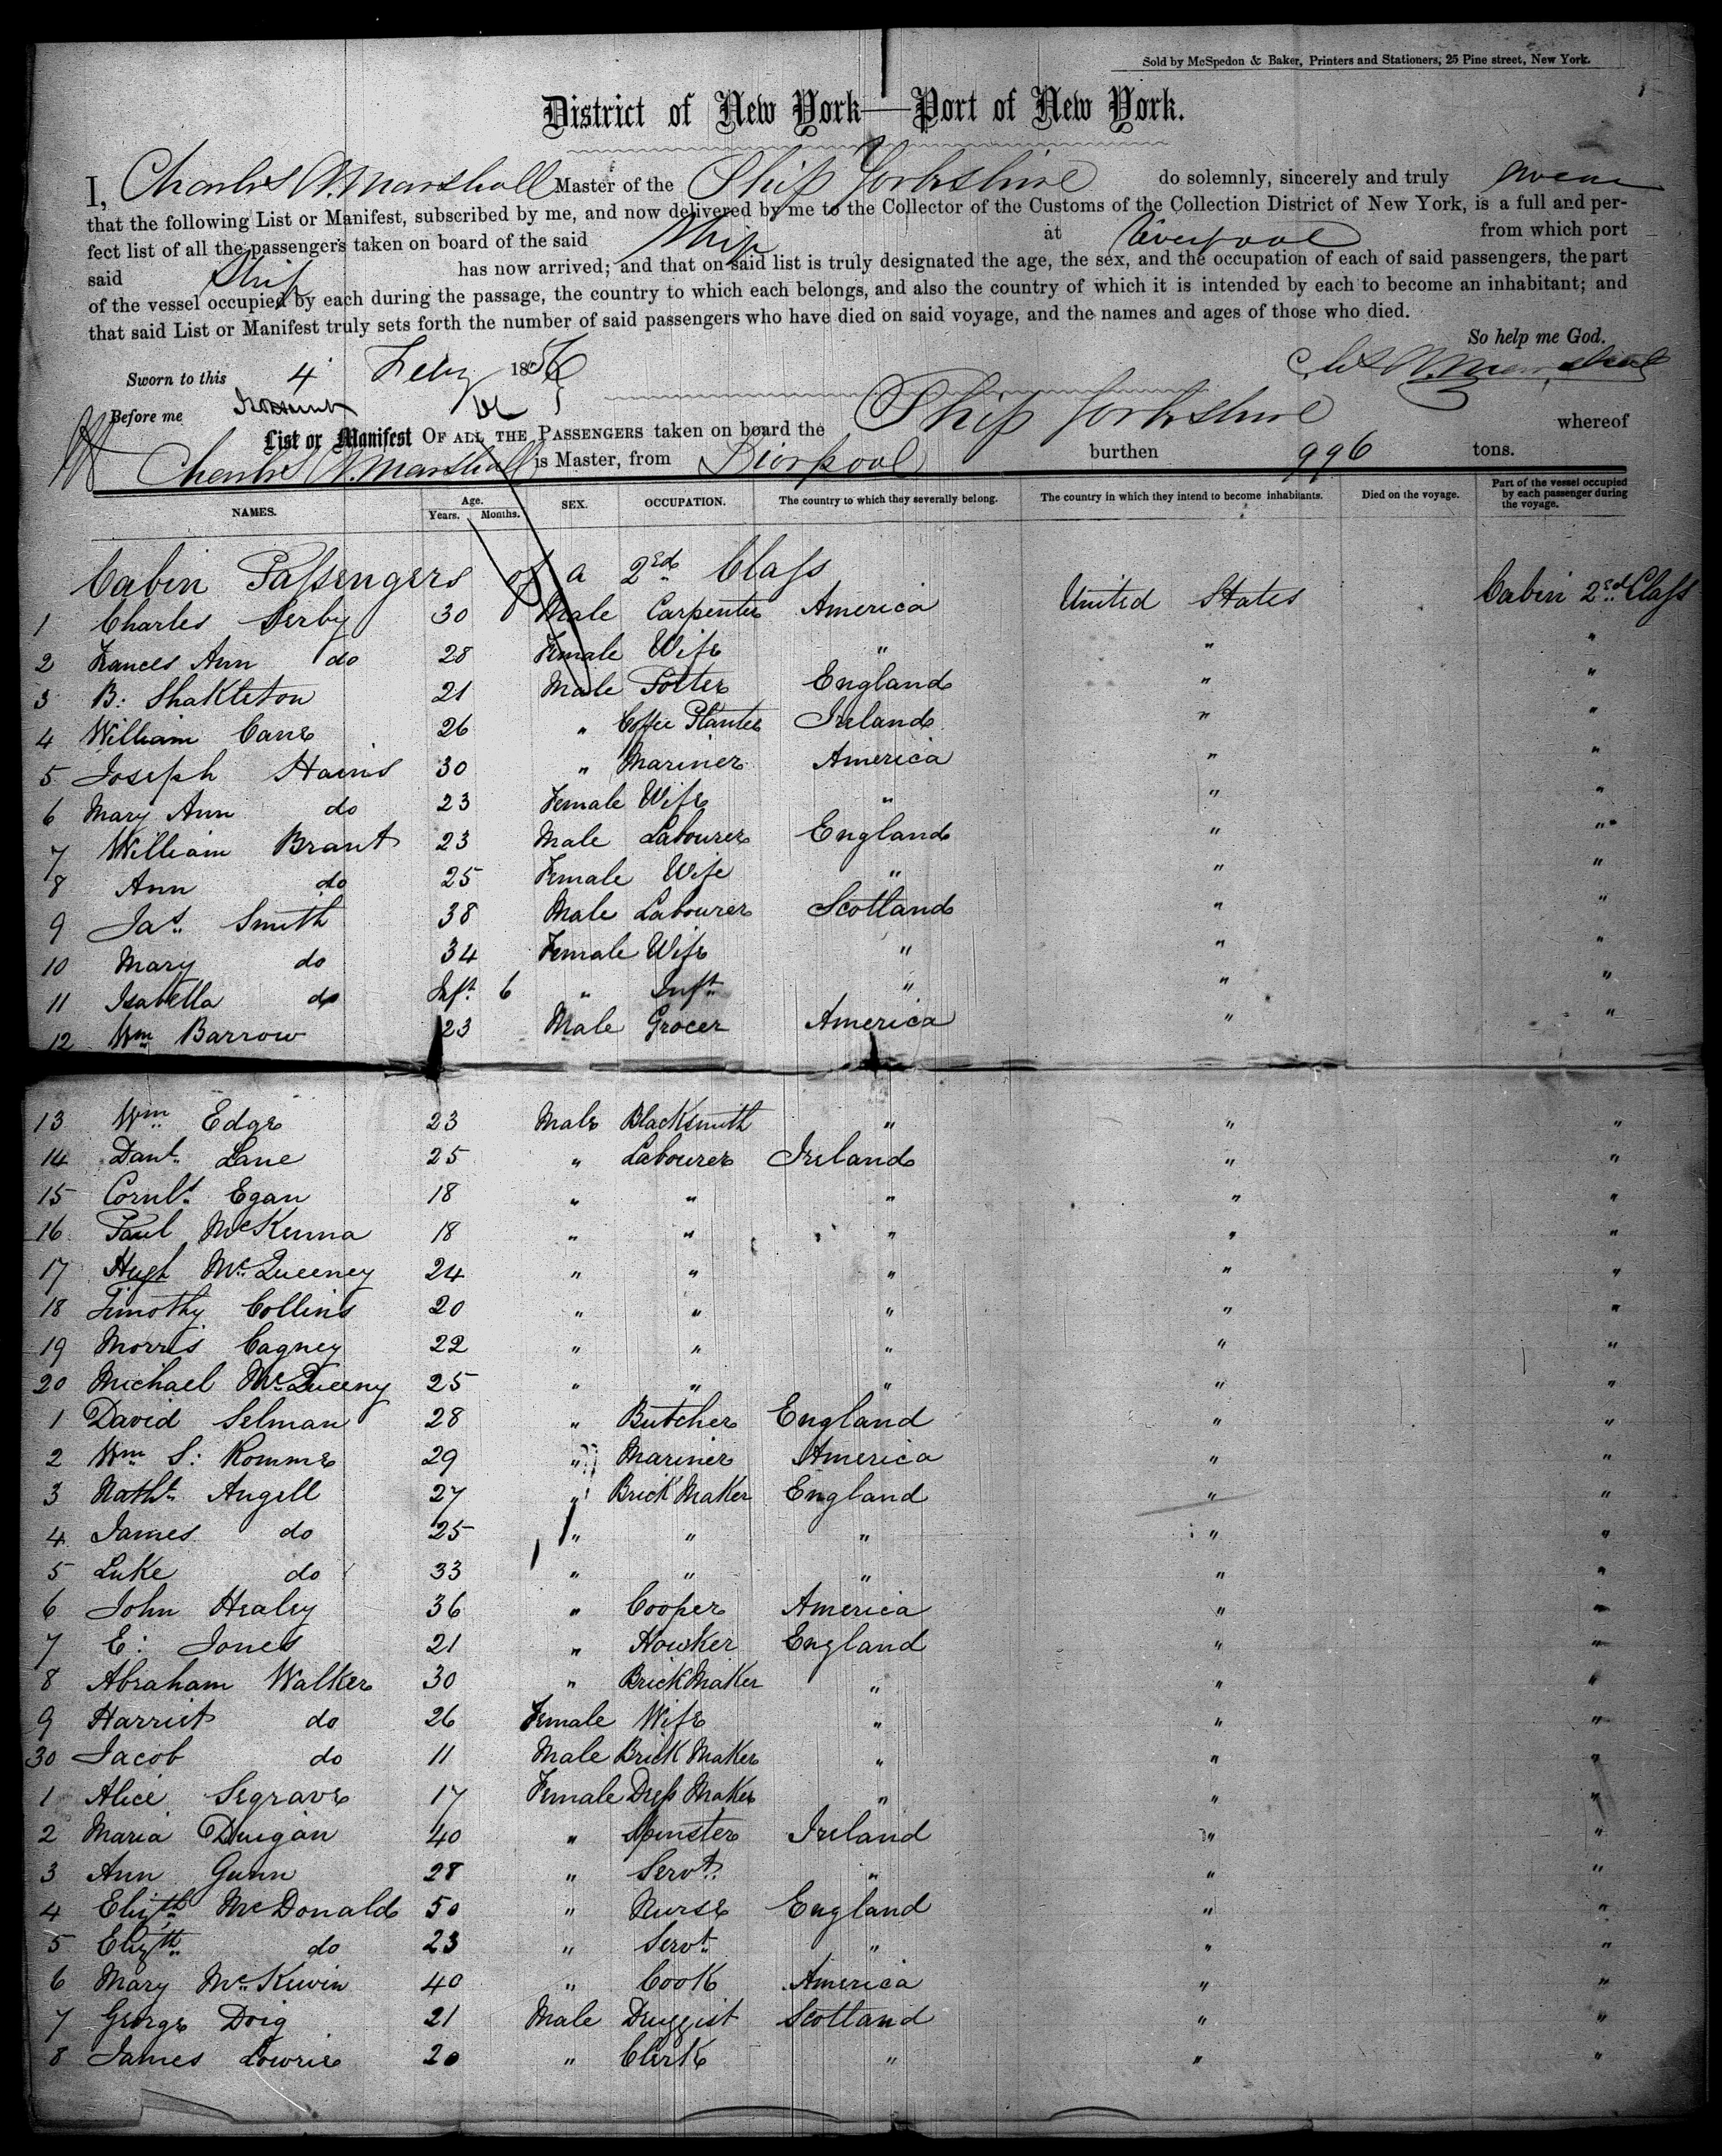 Sold by McSpedon & Baker, Printers and Stationers, 25 Pine street, New York.
District of New York—Port of New York.
I, Charles A. Marshall Master of the Ship Yorkshire do solemnly, sincerely and truly swear
that the following List or Manifest, subscribed by me, and now delivered by me to the Collector of the Customs of the Collection District of New York, is a full and per-
fect list of all the passengers taken on board of the said Ship at Liverpool from which port
said Ship has now arrived; and that on said list is truly designated the age, the sex, and the occupation of each of said passengers, the part
of the vessel occupied by each during the passage, the country to which each belongs, and also the country of which it is intended by each to become an inhabitant; and
that said List or Manifest truly sets forth the number of said passengers who have died on said voyage, and the names and ages of those who died.
So help me God.
Sworn to this 4 Feby 1856 Chs A. Marshall
Before me
List or Manifest OF ALL THE PASSENGERS taken on board the Ship Yorkshire whereof
Charles A. Marshall is Master, from Liverpool burthen 996 tons.
NAMES. Age. Years. Months. SEX. OCCUPATION. The country to which they severally belong. The country in which they intend to become inhabitants. Died on the voyage. Part of the vessel occupied by each passenger during the voyage.
Cabin Passengers of a 2ed Class
1 Charles Derby 30 Male Carpenter America United States Cabin 2ed Class
2 Frances Ann do 28 Female Wife " " "
3 B: Shakleton 21 Male Potter England " "
4 William Cane 26 " Coffee Planter Ireland " "
5 Joseph Hains 30 " Mariner America " "
6 Mary Ann do 23 Female Wife " " "
7 William Brant 23 Male Labourer England " "
8 Ann do 25 Female Wife " " "
9 Jas. Smith 38 Male Labourer Scotland " "
10 Mary do 34 Female Wife " " "
11 Isabella do Inft. 6 " Inft. " " "
12 Wm Barrow 23 Male Grocer America " "
13 Wm Edge 23 Male Blacksmith " " "
14 Danl. Lane 25 " Labourer Ireland " "
15 Cornls. Egan 18 " " " " "
16 Paul McKenna 18 " " " " "
17 Hugh McQueeney 24 " " " " "
18 Timothy Collins 20 " " " " "
19 Morris Cagney 22 " " " " "
20 Michael McQueeny 25 " " " " "
1 David Selman 28 " Butcher England " "
2 Wm S: Romme 29 " Mariner America " "
3 Nathl. Angell 27 " Brick Maker England " "
4 James do 25 " " " " "
5 Luke do 33 " " " " "
6 John Healey 36 " Cooper America " "
7 E: Jones 21 " Hawker England " "
8 Abraham Walker 30 " Brick Maker " " "
9 Harriet do 26 Female Wife " " "
30 Jacob do 11 Male Brick Maker " " "
1 Alice Segrave 17 Female Dress Maker " " "
2 Maria Duigan 40 " Spinster Ireland " "
3 Ann Gunn 28 " Servt. " " "
4 Elizth McDonald 50 " Nurse England " "
5 Elizth do 23 " Servt. " " "
6 Mary McKewin 40 " Cook America " "
7 George Doig 21 Male Druggist Scotland " "
8 James Lowrie 20 " Clerk " " "